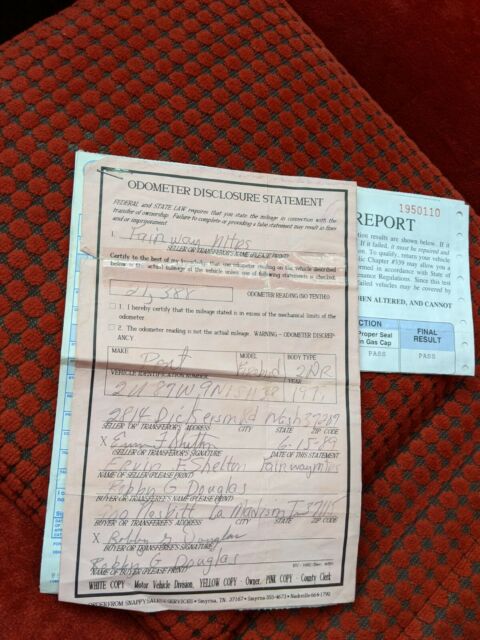 ODOMETER DISCLOSURE STATEMENT
FEDERAL and STATE LAW requires that you state the mileage in connection with the
transfer of ownership. Failure to complete or providing a false statement may result in fines
and/or imprisonment
I, Fairway Mtrs
SELLER OR TRANSFEROR'S NAME (PLEASE PRINT)
Certify to the best of my knowledge that the odometer reading on the vehicle described
below is the actual mileage of the vehicle unless one of following statements is checked.
ODOMETER READING (NO TENTHS)
☐ 1. I hereby certify that the mileage stated is in excess of the mechanical limits of the
odometer.
☐ 2. The odometer reading is not the actual mileage. WARNING - ODOMETER DISCREP-
ANCY
MAKE MODEL BODY TYPE
Pont Firebird 2DR
VEHICLE IDENTIFICATION NUMBER
2814 Dickerson Rd Nash 37207
SELLER OR TRANSFEROR'S ADDRESS CITY STATE ZIP CODE
X Ervin F Shelton 6-15-89
SELLER OR TRANSFEROR'S SIGNATURE DATE OF THIS STATEMENT
Ervin F Shelton Fairway Mtrs
NAME OF SELLER (PLEASE PRINT)
Bobby G Douglas
BUYER OR TRANSFEREE'S NAME (PLEASE PRINT)
Madison T 37115
BUYER OR TRANSFEREE'S ADDRESS CITY STATE ZIP CODE
X Bobby G Douglas
BUYER OR TRANSFEREE'S SIGNATURE
Bobby G Douglas
NAME OF BUYER (PLEASE PRINT)
WHITE COPY - Motor Vehicle Division, YELLOW COPY - Owner, PINK COPY - County Clerk
ORDER FROM SNAPPY SALES & SERVICES • Smyrna, TN. 37167 • Smyrna 355-4673 • Nashville 664-1792
1950110
REPORT
tion results are shown below. If it
If it failed, it must be repaired and
on. To qualify, return your vehicle
lic Chapter #339 may allow you a
formed in accordance with State of
urance Regulations. Since this test
failed vehicles may be covered by
HEN ALTERED, AND CANNOT
CTION FINAL
Proper Seal RESULT
on Gas Cap
PASS PASS